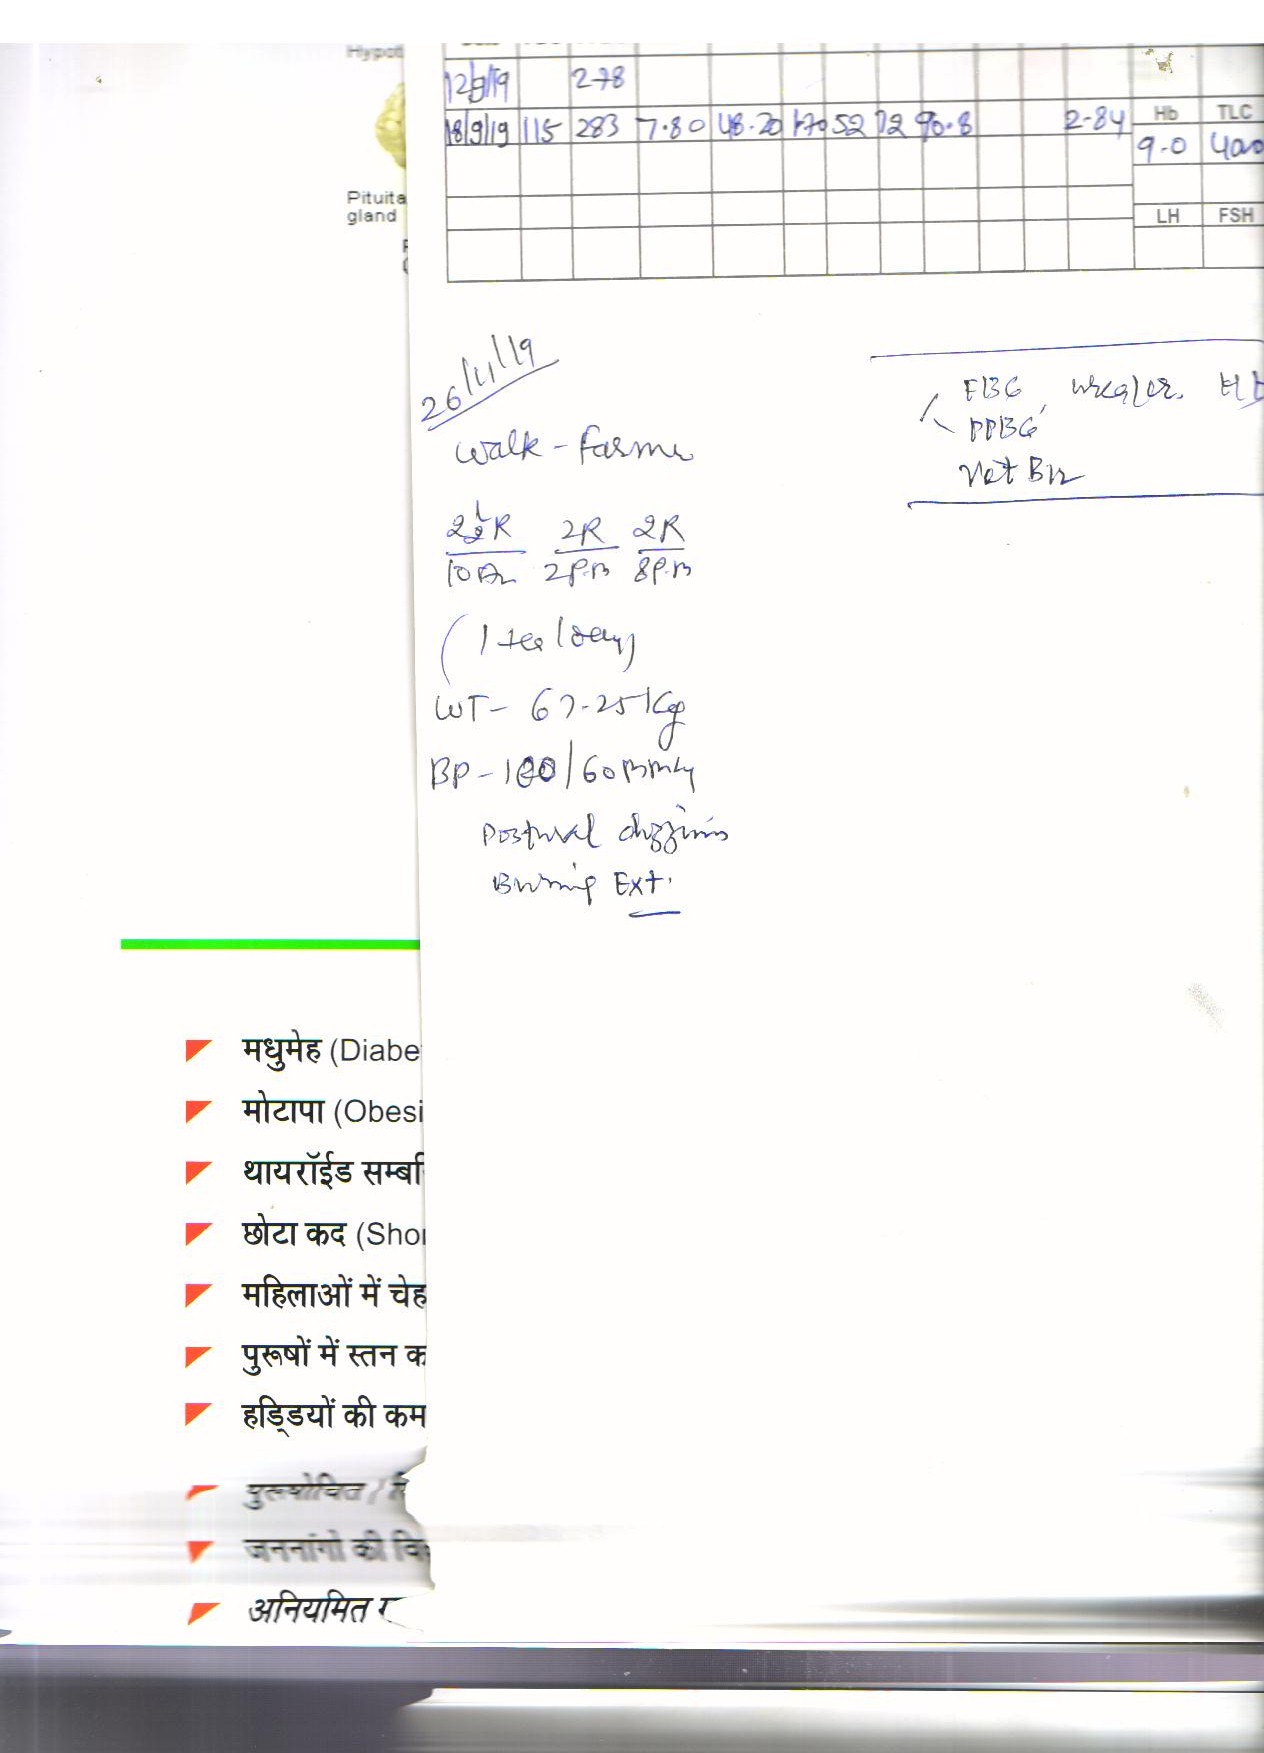 Hypot
12/9/19 278
18/9/19 115 283 7.80 48.20 170 52 72 90.8 2.84 Hb TLC
9.0
Pituita
gland
LH FSH
26/11/19
FBG, urea/cr. Hb
PPBG
Walk - Farmer
2½R 2R 2R
10Am 2P.m 8P.m
(1 tea/day)
WT- 67.25 Kg
BP - /60 mmHg
Postural dizziness
Burning Ext.
मधुमेह (Diabe
मोटापा (Obesi
थायरॉईड सम्बि
छोटा कद (Shor
महिलाओं में चेह
पुरूषों में स्तन क
हड्डियों की कम
पुरूषोचित / f
जननांगो की वि
अनियमित र